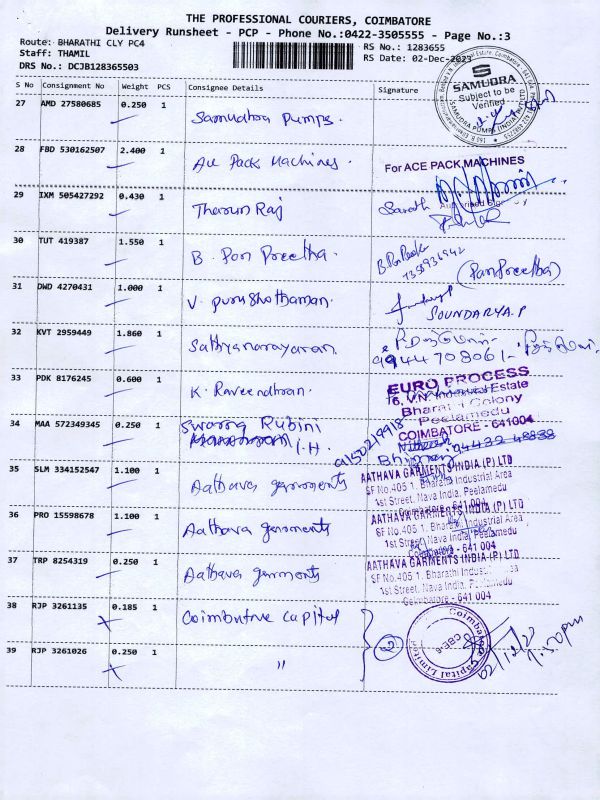 THE PROFESSIONAL COURIERS, COIMBATORE
Delivery Runsheet - PCP - Phone No.:0422-3505555 - Page No.:3
Route: BHARATHI CLY PC4
RS No.: 1283655
Staff: THAMIL
RS Date: 02-Dec-2023
DRS No.: DCJB128365503
S No Consignment No Weight PCS Consignee Details Signature
SAMUDRA
Subject to be
Verified
27 AMD 27580685 0.250 1 Samudhra Pumps.
28 FBD 530162507 2.400 1 Ace Pack Machines. For ACE PACK MACHINES
29 IXM 505427292 0.430 1 Tharun Raj Sarath
30 TUT 419387 1.550 1 B. Pon Preetha. (PonPreetha)
31 DWD 4270431 1.000 1 V. purushothaman. SOUNDARYA.P
32 KVT 2959449 1.860 1 Sathyanarayanan
9944708061
33 PDK 8176245 0.600 1 K. Raveendhran.
EURO PROCESS
6, V.N. Industrial Estate
Bharathi Colony
Peelamedu
COIMBATORE - 641004
34 MAA 572349345 0.250 1 Swarna Rubini
I.H
9150219918
35 SLM 334152547 1.100 1 Aathava garments
AATHAVA GARMENTS INDIA (P) LTD
SF No.405 1, Bharathi Industrial Area
1st Street, Nava India, Peelamedu
Coimbatore - 641 004
36 PRO 15598678 1.100 1 Aathava garments
AATHAVA GARMENTS INDIA (P) LTD
SF No.405 1, Bharathi Industrial Area
1st Street, Nava India, Peelamedu
Coimbatore - 641 004
37 TRP 8254319 0.250 1 Aathava garments
AATHAVA GARMENTS INDIA (P) LTD
SF No.405 1, Bharathi Industrial Area
1st Street, Nava India, Peelamedu
Coimbatore - 641 004
38 RJP 3261135 0.185 1 Coimbatore Capital
2
Coimbatore Capital Limited
CBE-6
39 RJP 3261026 0.250 1 "